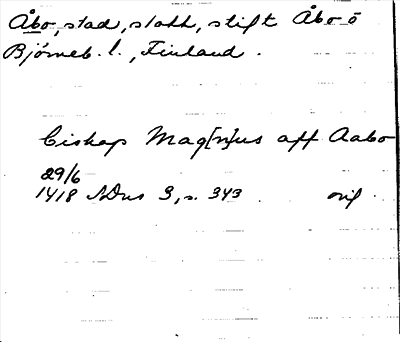 Åbo, stad, slott, stift Åbo o
Björneb. l., Finland.
biskop Mag[n]us aff Aabo
29/6
1418 SDns 3, s. 343 orig.